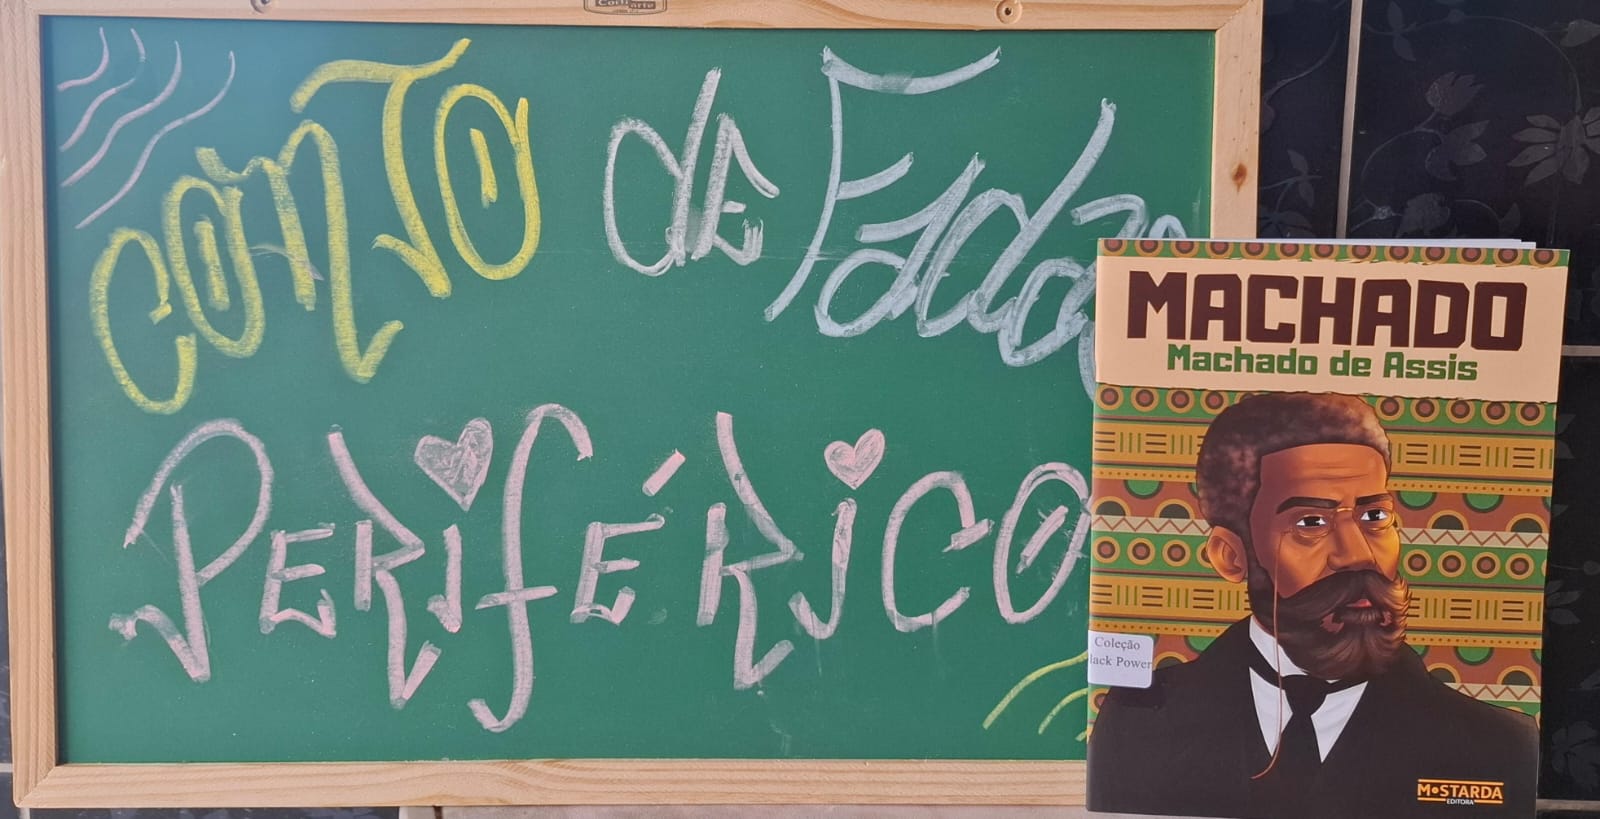 CONTO dE Fadas
PERIFÉRICO
MACHADO
Machado de Assis
Coleção
lack Power
MOSTARDA
EDITORA